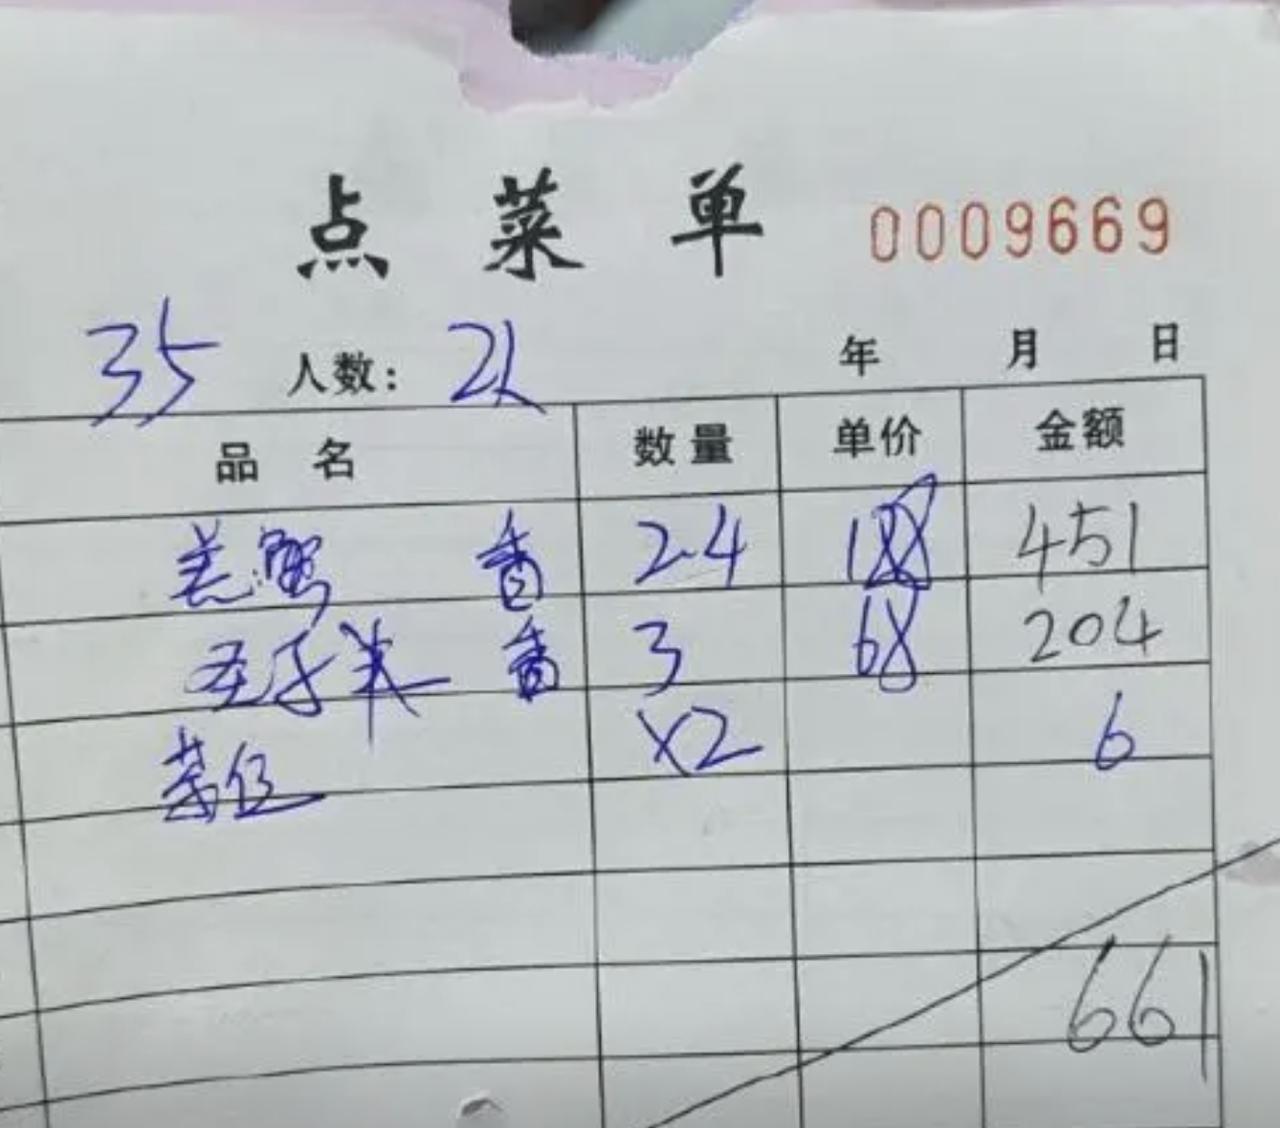 点菜单 0009669
35 人数: 2人 年 月 日
品名 数量 单价 金额
2.4 188 451
3 68 204
茶位 x2 6
661